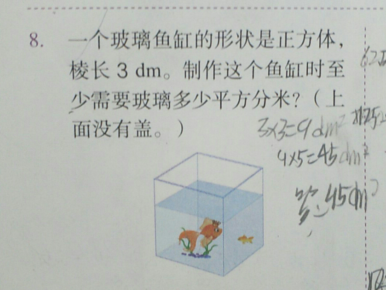 8. 一个玻璃鱼缸的形状是正方体，
棱长 3 dm。制作这个鱼缸时至
少需要玻璃多少平方分米？（上
面没有盖。）
3×3=9dm²
9×5=45dm²
答:45dm²